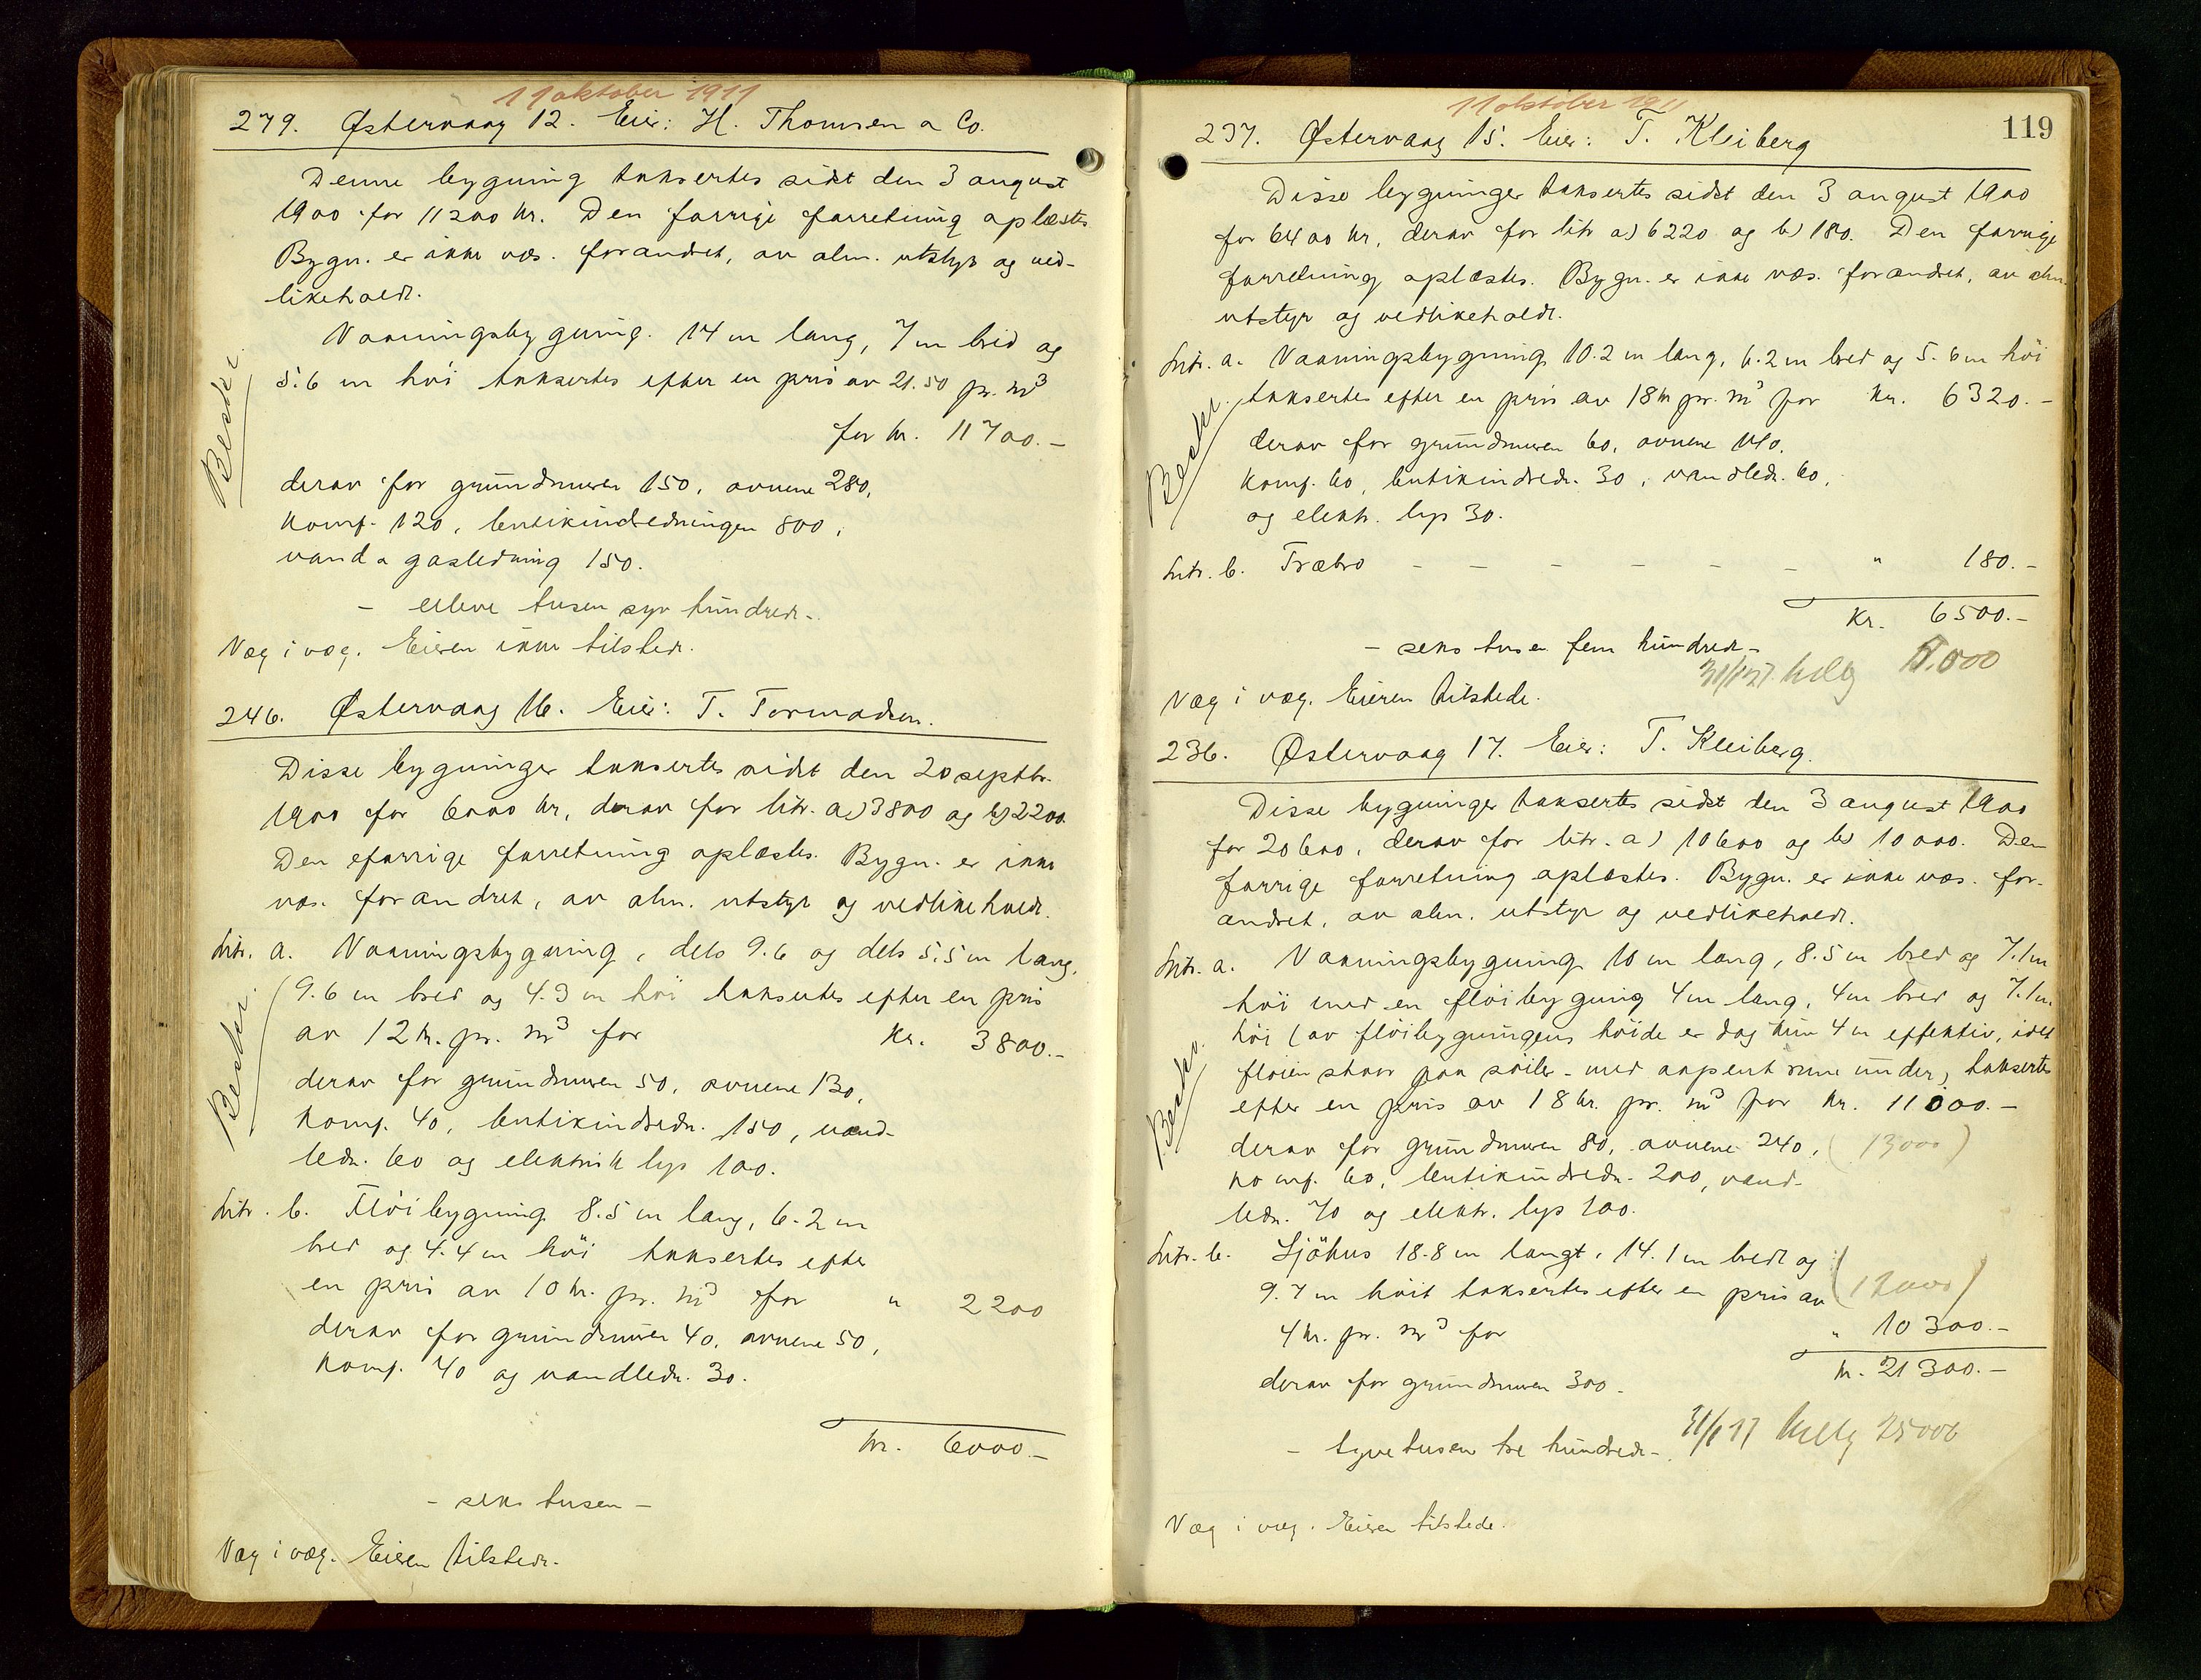 11 oktober 1911
279. Østervaag 12. Eier: H. Thomsen a Co.
Denne bygning taksertes sidst den 3 august
1900 for 11200 kr. Den forrige forretning oplæstes
Bygn. er ikke væs. forandret, av alm. utstyr og ved-
likeholdt.
Vaaningsbygning. 14 m lang, 7 m bred og
5.6 m høi taksertes efter en pris av 21.50 pr. m³
for kr. 11700.-
Beskr.
derav for grundmuren 150, ovnene 280,
komf. 120, butikindredningen 800,
vand a gasledning 150.
- elleve tusen syv hundrede -
Væg i væg. Eieren ikke tilstede.
246. Østervaag 16. Eier: T. Tormodsen.
Disse bygninger taksertes sidst den 20 septbr.
1900 for 6000 kr, derav for litr. a) 3800 og b) 2200
Den forrige forretning oplæstes. Bygn. er ikke
væs. forandret, av alm. utstyr og vedlikeholdt.
Litr. a. Vaaningsbygning, dels 9.6 og dels 5.5 m lang,
9.6 m bred og 4.3 m høi taksertes efter en pris
av 12 kr. pr. m³ for Kr. 3800.-
Beskr.
derav for grundmuren 50, ovnene 130,
komf. 40, butikindredn. 150, vand-
ledn. 60 og elektrisk lys 100.
Litr. b. Fløibygning 8.5 m lang, 6.2 m
bred og 4.4 m høi taksertes efter
en pris av 10 kr. pr. m³ for " 2200
derav for grundmuren 40, ovnene 50,
komf. 40 og vandledn. 30.
kr. 6000.-
- seks tusen -
Væg i væg. Eieren tilstede.
11 oktober 1911
119
237. Østervaag 15. Eier: T. Kleiberg
Disse bygninger taksertes sidst den 3 august 1900
for 6400 kr, derav for litr a) 6220 og b) 180. Den forrige
forretning oplæstes. Bygn. er ikke væs. forandret, av alm.
utstyr og vedlikeholdt.
Litr. a. Vaaningsbygning 10.2 m lang, 6.2 m bred og 5.6 m høi
taksertes efter en pris av 18 kr pr. m³ for Kr. 6320.-
Beskr.
derav for grundmuren 60, ovnene 140,
komf. 60, butikindredn. 30, vandledn. 60,
og elektr. lys 30.
Litr. b. Træbro - - - - - - " 180.-
Kr. 6500.-
- seks tusen fem hundrede -
31/1 17
Væg i væg. Eieren tilstede.
236. Østervaag 17. Eier: T. Kleiberg.
Disse bygninger taksertes sidst den 3 august 1900
for 20600, derav for litr. a) 10600 og b) 10000. Den
forrige forretning oplæstes. Bygn. er ikke væs. for-
andret, av alm. utstyr og vedlikeholdt.
Litr. a. Vaaningsbygning 10 m lang, 8.5 m bred og 7.1 m
høi med en fløibygning 4 m lang, 4 m bred og 7.1 m.
høi (av fløibygningens høide er dog kun 4 m effektiv, idet
fløien staar paa søiler - med aapent rum under) taksertes
efter en pris av 18 kr. pr. m³ for kr. 11000.-
Beskr.
derav for grundmuren 80, ovnene 240, (13000)
komf. 60, butikindredn. 200, vand-
ledn. 70 og elektr. lys 100.
Litr. b. Sjöhus 18.8 m langt, 14.1 m bredt og
9.7 m høit taksertes efter en pris av (12000)
4 kr. pr. m³ for " 10300.-
kr. 21300.-
derav for grundmuren 300.
- tyvetusen tre hundrede - 31/1 17 25000
Væg i væg. Eieren tilstede.